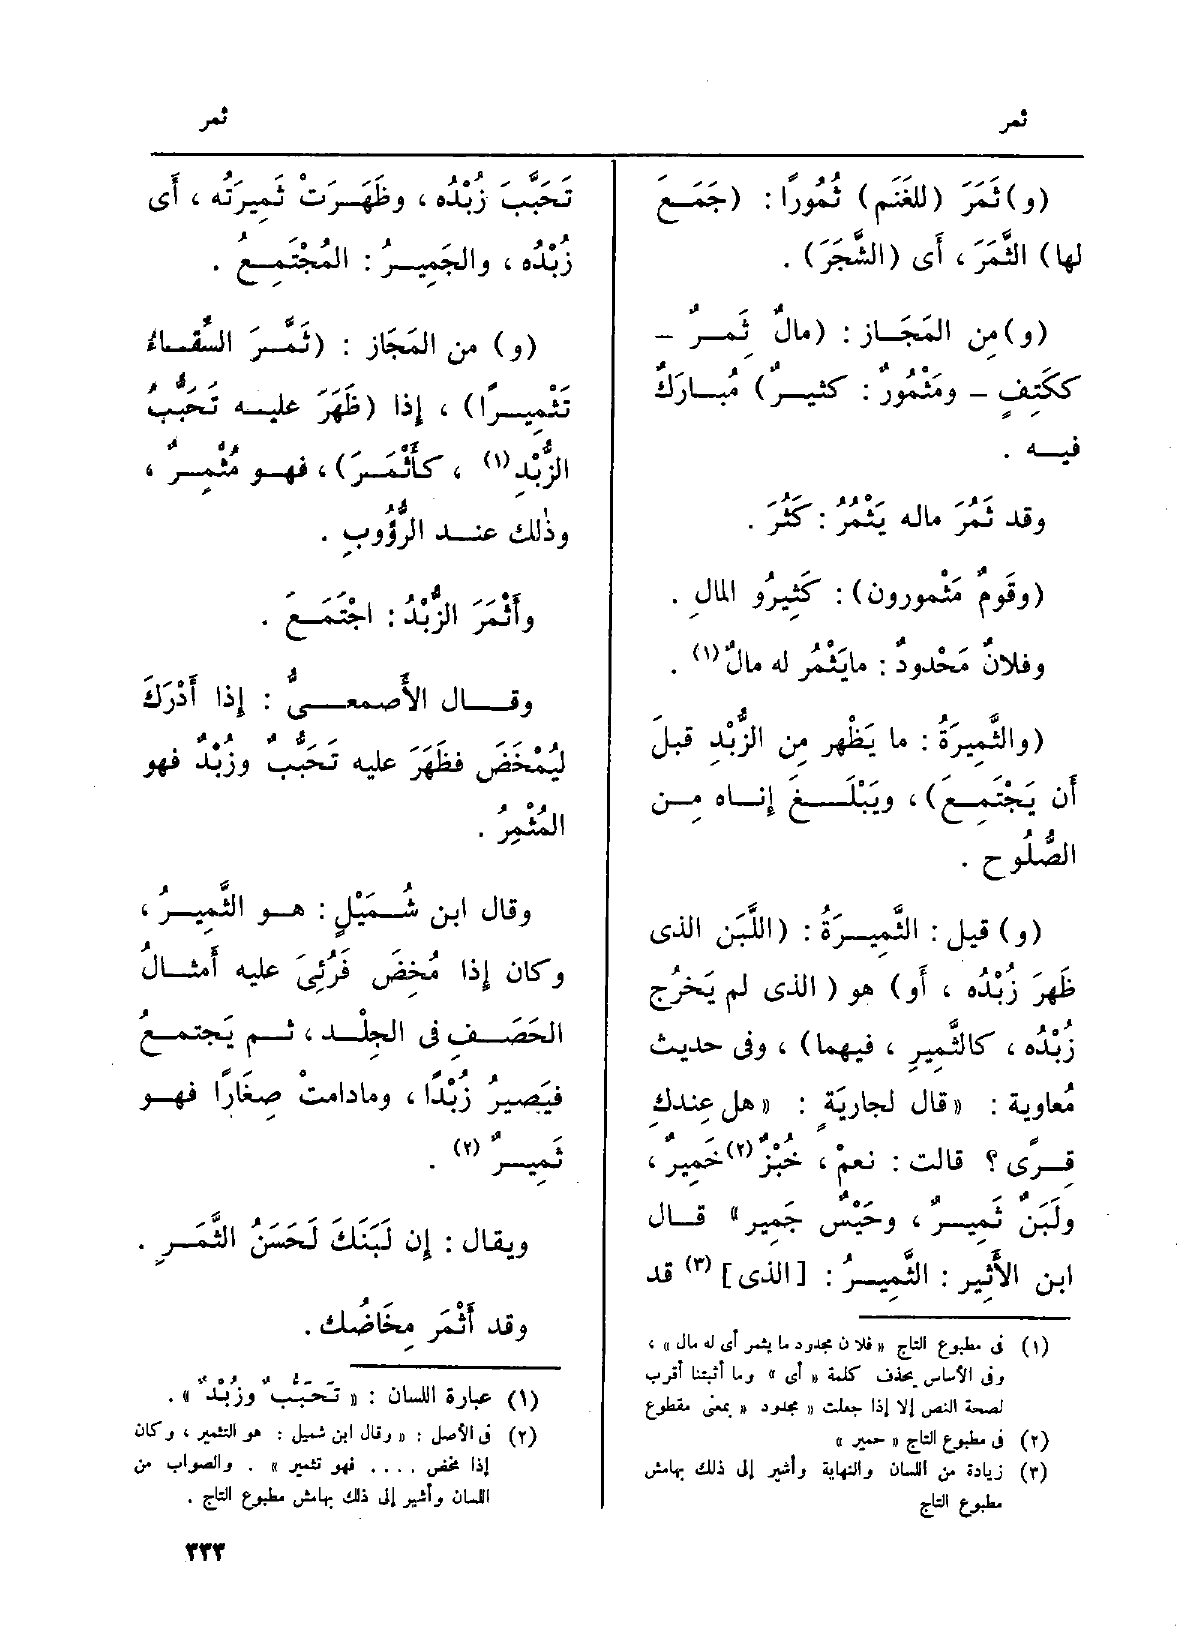 ثمر
ثمر
(و) ثَمَرَ (للغَنَم) ثُمُورًا : (جَمَعَ
لها) الثَّمَرَ ، أَى (الشَّجَرَ) .
(و) مِن المَجَاز : (مالٌ ثَمِرٌ –
ككَتِفٍ – ومَثْمُورٌ : كثيرٌ) مُبارَكٌ
فيه .
وقد ثَمُرَ ماله يَثْمُرُ : كَثُرَ .
(وقَومٌ مَثْمورون) : كَثِيرُو المالِ .
وفلانٌ مَحْدودٌ : مايَثْمُر له مالٌ (١) .
(والثَّمِيرَةُ : ما يَظْهر مِن الزُّبْدِ قبلَ
أَن يَجْتَمِعَ) ، ويَبْلَغَ إِناه مِن
الصُّلُوح .
(و) قيل : الثَّمِيرَةُ : (اللَّبَن الذى
ظَهرَ زُبْدُه ، أَو) هو (الذى لم يَخرُج
زُبْدُه ، كالثَّمِيرِ ، فيهما) ، وفى حديث
مُعاوية : «قال لجاريَةٍ : «هل عِندكِ
قِرًى ؟ قالت : نعمْ ، خُبْزٌ (٢) خَمِيرٌ ،
ولَبَنٌ ثَمِيرٌ ، وحَيْسٌ جَمِير» قال
ابن الأَثِير : الثَّمِيرُ : [الذى] (٣) قد
(١) فى مطبوع التاج «فلان مجدود ما يثمر أى له مال» ،
وفى الأساس بحذف كلمة «أى» وما أثبتنا أقرب
لصحة النص إلا إذا جعلت «مجدود» بمعنى مقطوع
(٢) فى مطبوع التاج «حمير»
(٣) زيادة من اللسان والنهاية وأشير إلى ذلك بهامش
مطبوع التاج
تَحَبَّبَ زُبْدُه ، وظَهَرَتْ ثَمِيرَتُه ، أَى
زُبْدُه ، والجَمِيرُ : المُجْتَمِعُ .
(و) من المَجَاز : (ثَمَّرَ السِّقاءُ
تَثْمِيرًا) ، إِذا (ظَهَرَ عليه تَحَبُّبُ
الزُّبْدِ (١) ، كأَثْمَرَ) ، فهو مُثْمِرٌ ،
وذٰلك عند الرُّؤُوبِ .
وأَثْمَرَ الزُّبْدُ : اجْتَمَعَ .
وقال الأَصمعىُّ : إِذا أَدْرَكَ
ليُمْخَضَ فظَهَرَ عليه تَحَبُّبٌ وزُبْدٌ فهو
المُثْمِرُ .
وقال ابن شُمَيْلٍ : هو الثَّمِيرُ ،
وكان إِذا مُخِضَ فَرُئِىَ عليه أَمثالُ
الحَصَفِ فى الجِلْد ، ثم يَجتمعُ
فيَصيرُ زُبْدًا ، ومادامتْ صِغَارًا فهو
ثَمِيرٌ (٢) .
ويقال : إِن لَبَنَكَ لَحَسَنُ الثَّمَرِ .
وقد أَثْمَر مِخَاضُك .
(١) عبارة اللسان : «تَحَبُّبٌ وزُبْدٌ» .
(٢) فى الأصل : «وقال ابن شميل : هو التثمير ، وكان
إذا مخض .... فهو تثمير» . والصواب من
اللسان وأشير إلى ذلك بهامش مطبوع التاج .
٣٣٣